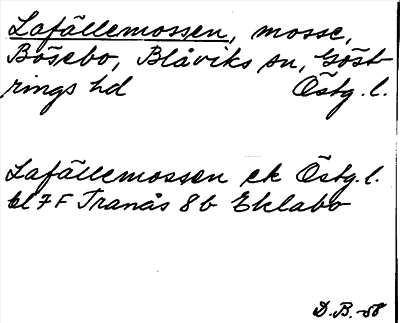 Lafällemossen, mosse,
Bösebo, Blåviks sn, Göst-
rings hd Östg. l.
Lafällemossen ek Östg. l.
bl 7 F Tranås 8 b Eklabo
D. B. -58